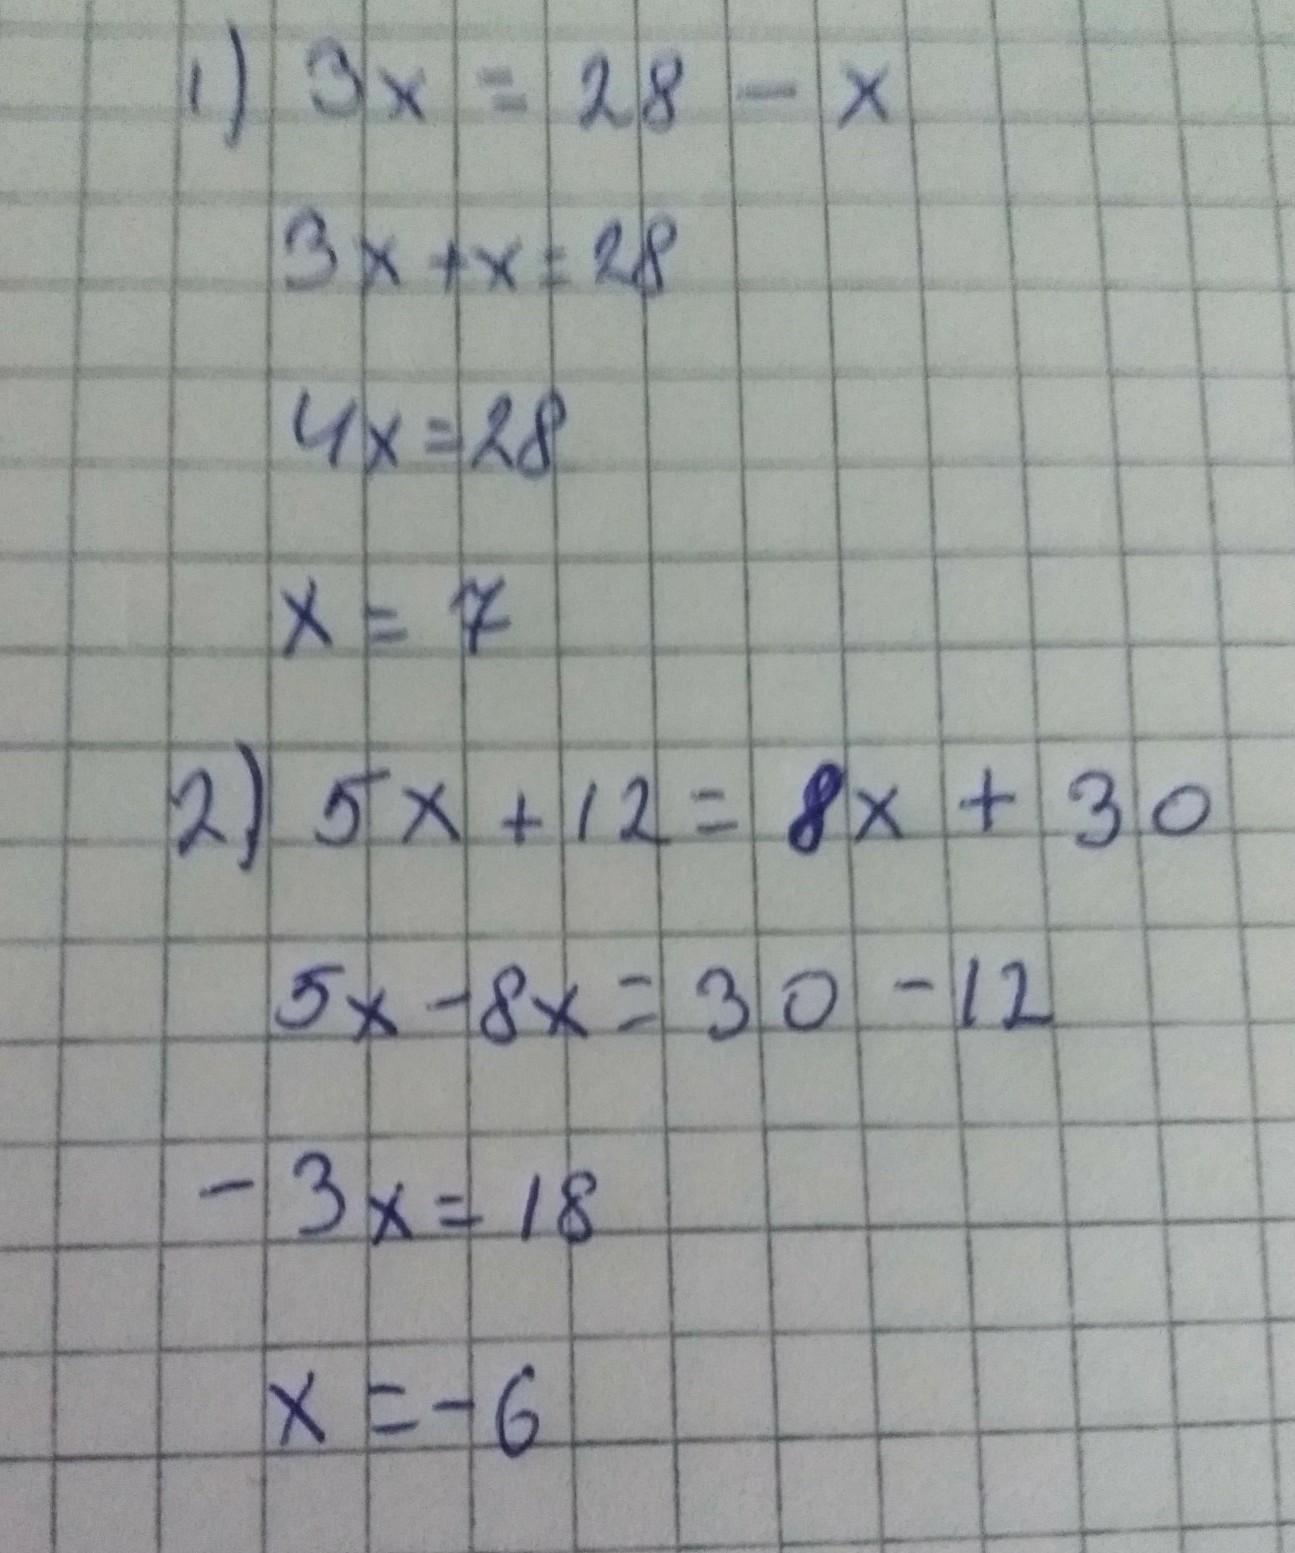 1) 3x = 28 - x
3x + x = 28
4x = 28
x = 7
2) 5x + 12 = 8x + 30
5x - 8x = 30 - 12
- 3x = 18
x = - 6